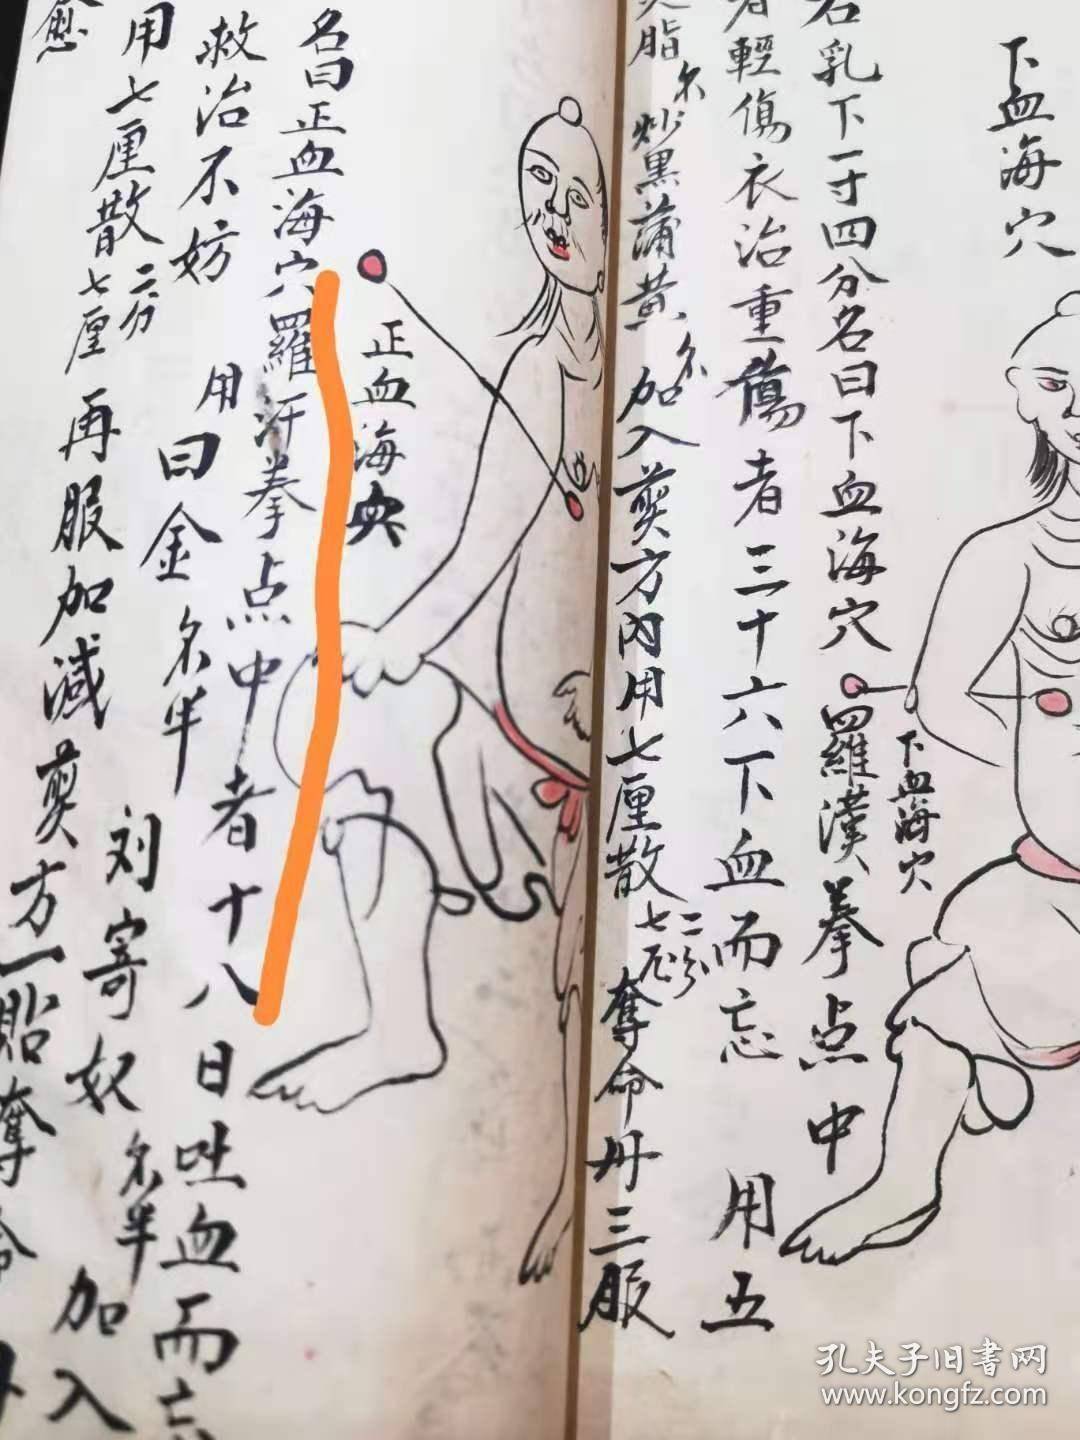 下血海穴
右乳下一寸四分名曰下血海穴 羅漢拳点中
下血海穴
者輕傷衣治重傷者三十六下血而忘 用五
脂 炒黑蒲黄 加入煎方內用七厘散 二分 七厘 奪命丹三服
正血海穴
名曰正血海穴羅汗拳点中者十八日吐血而亡
救治不妨 用
曰金 半 刘寄奴 半 加入
用七厘散 二分 七厘 再服加減煎方一貼奪命丹
愈
孔夫子旧書网
www.kongfz.com